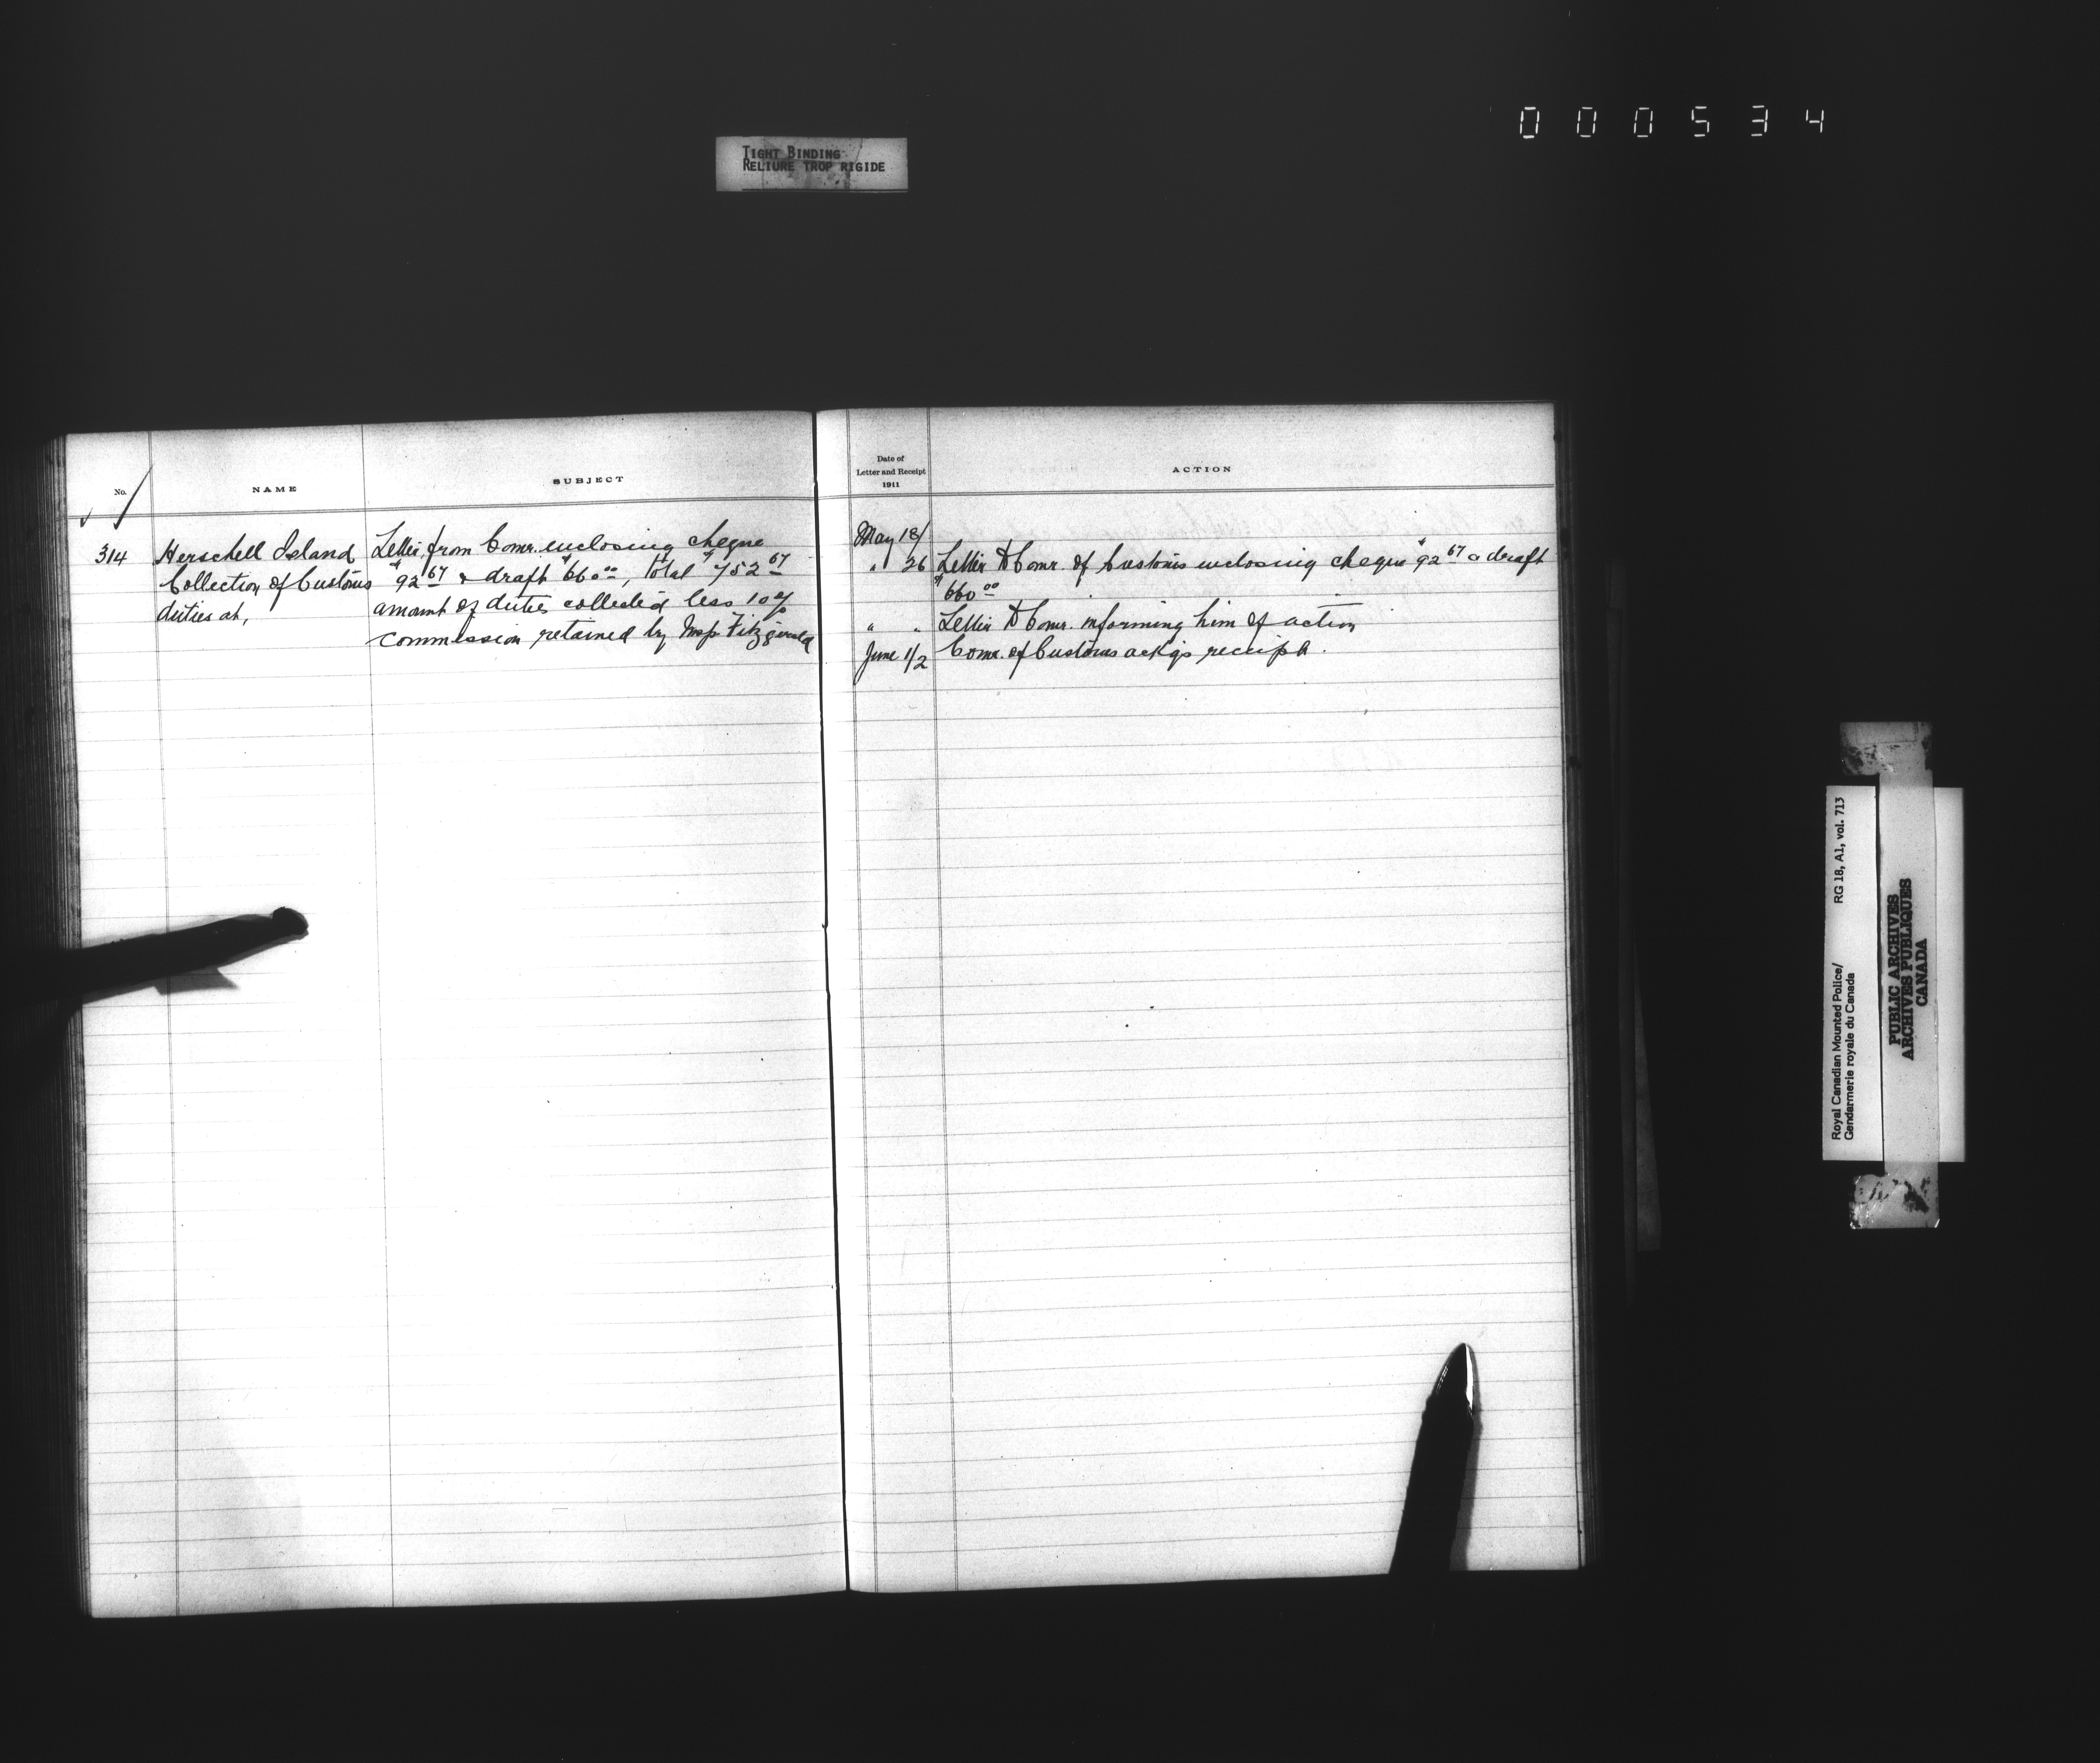 000534
TIGHT BINDING
RELIURE TROP RIGIDE
No.
NAME
SUBJECT
314
Herschell Island
Collection of Customs
duties at,
Letter from Comr. enclosing cheque
$92 67 & draft $660 00, total $752 67
amount of duties collected less 10%
commission retained by Insp. Fitzgerald
Date of
Letter and Receipt
1911
ACTION
May 18/
" 26 Letter to Comr. of Customs enclosing cheque $92 67 & draft
$660 00
" " Letter to Comr. informing him of action
June 1/2 Comr. of Customs ackgs receipt.
Royal Canadian Mounted Police/ RG 18, A1, vol. 713
Gendarmerie royale du Canada
PUBLIC ARCHIVES
ARCHIVES PUBLIQUES
CANADA